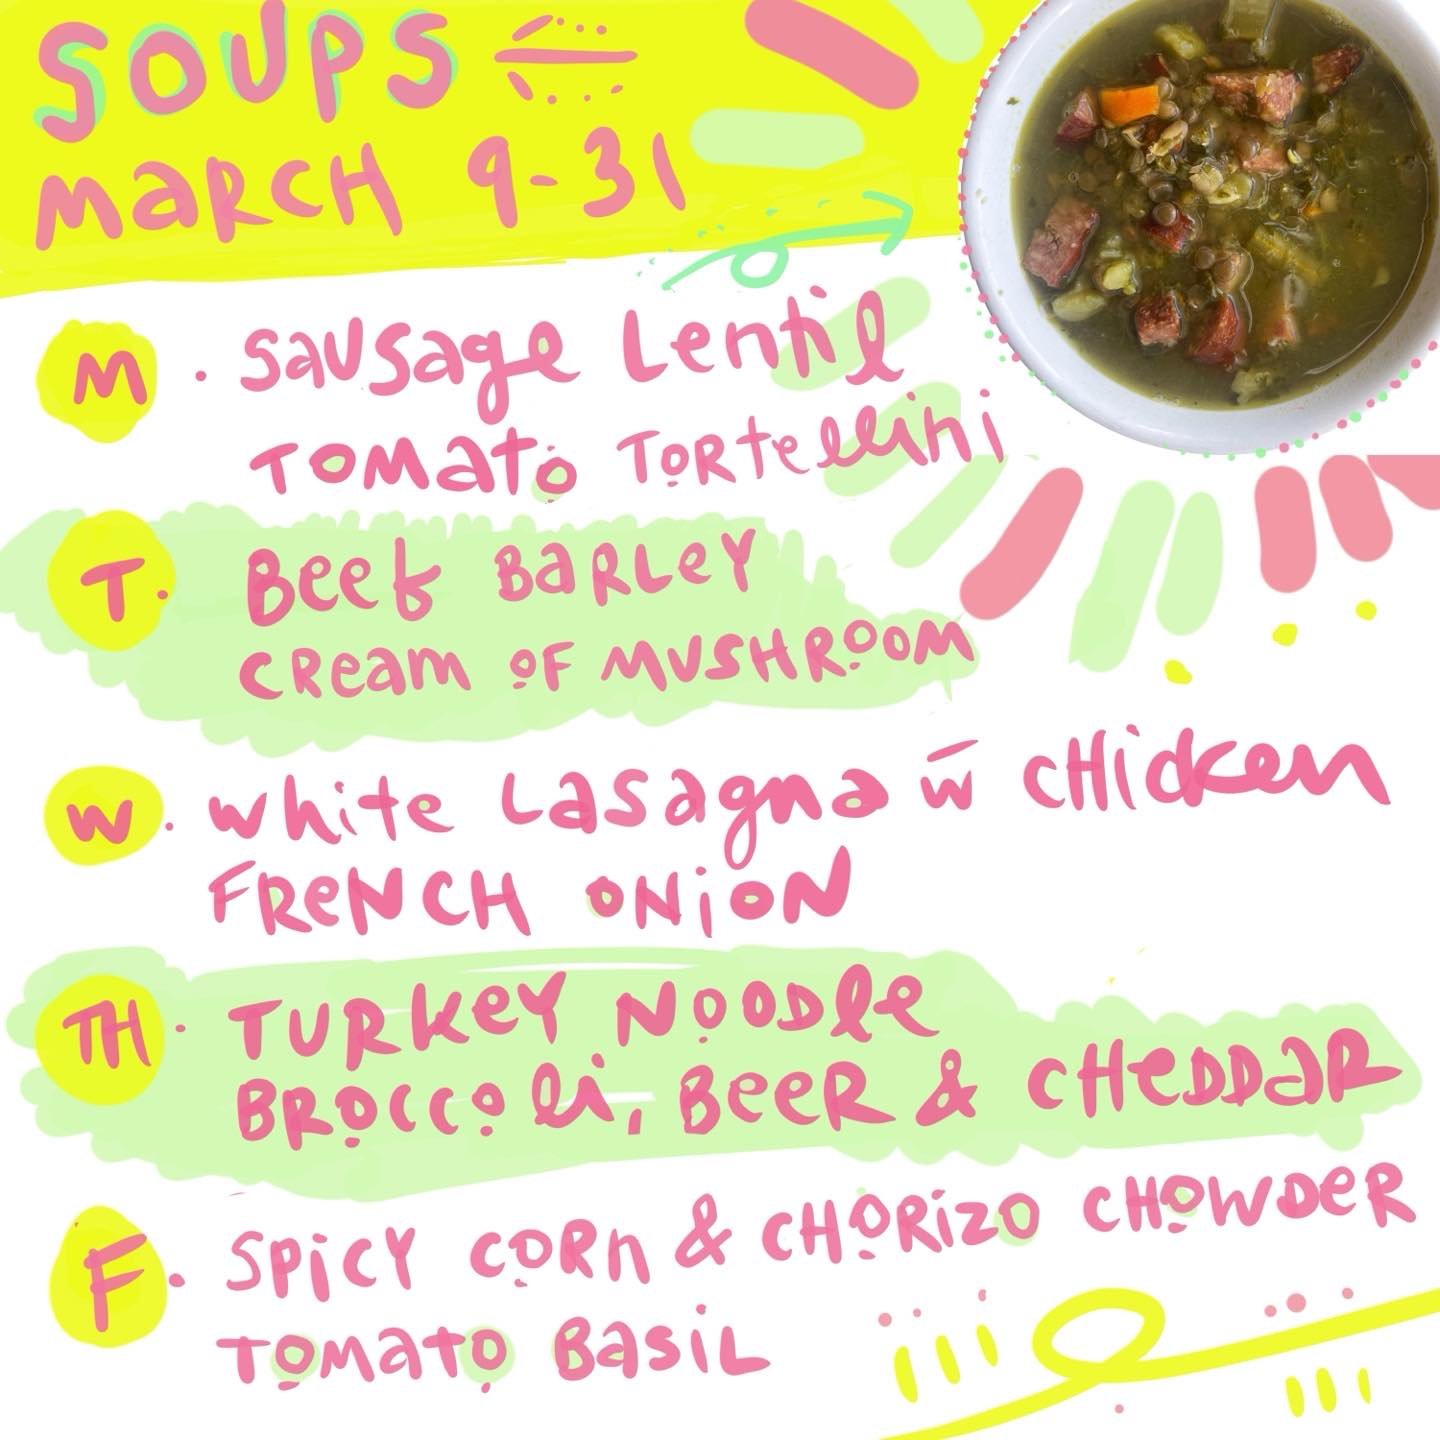 SOUPS
MARCH 9-31
M. Sausage Lentil
Tomato Tortellini
T. Beef Barley
Cream of Mushroom
W. White Lasagna w̄ Chicken
French Onion
TH. Turkey Noodle
Broccoli, Beer & Cheddar
F. Spicy Corn & Chorizo Chowder
Tomato Basil